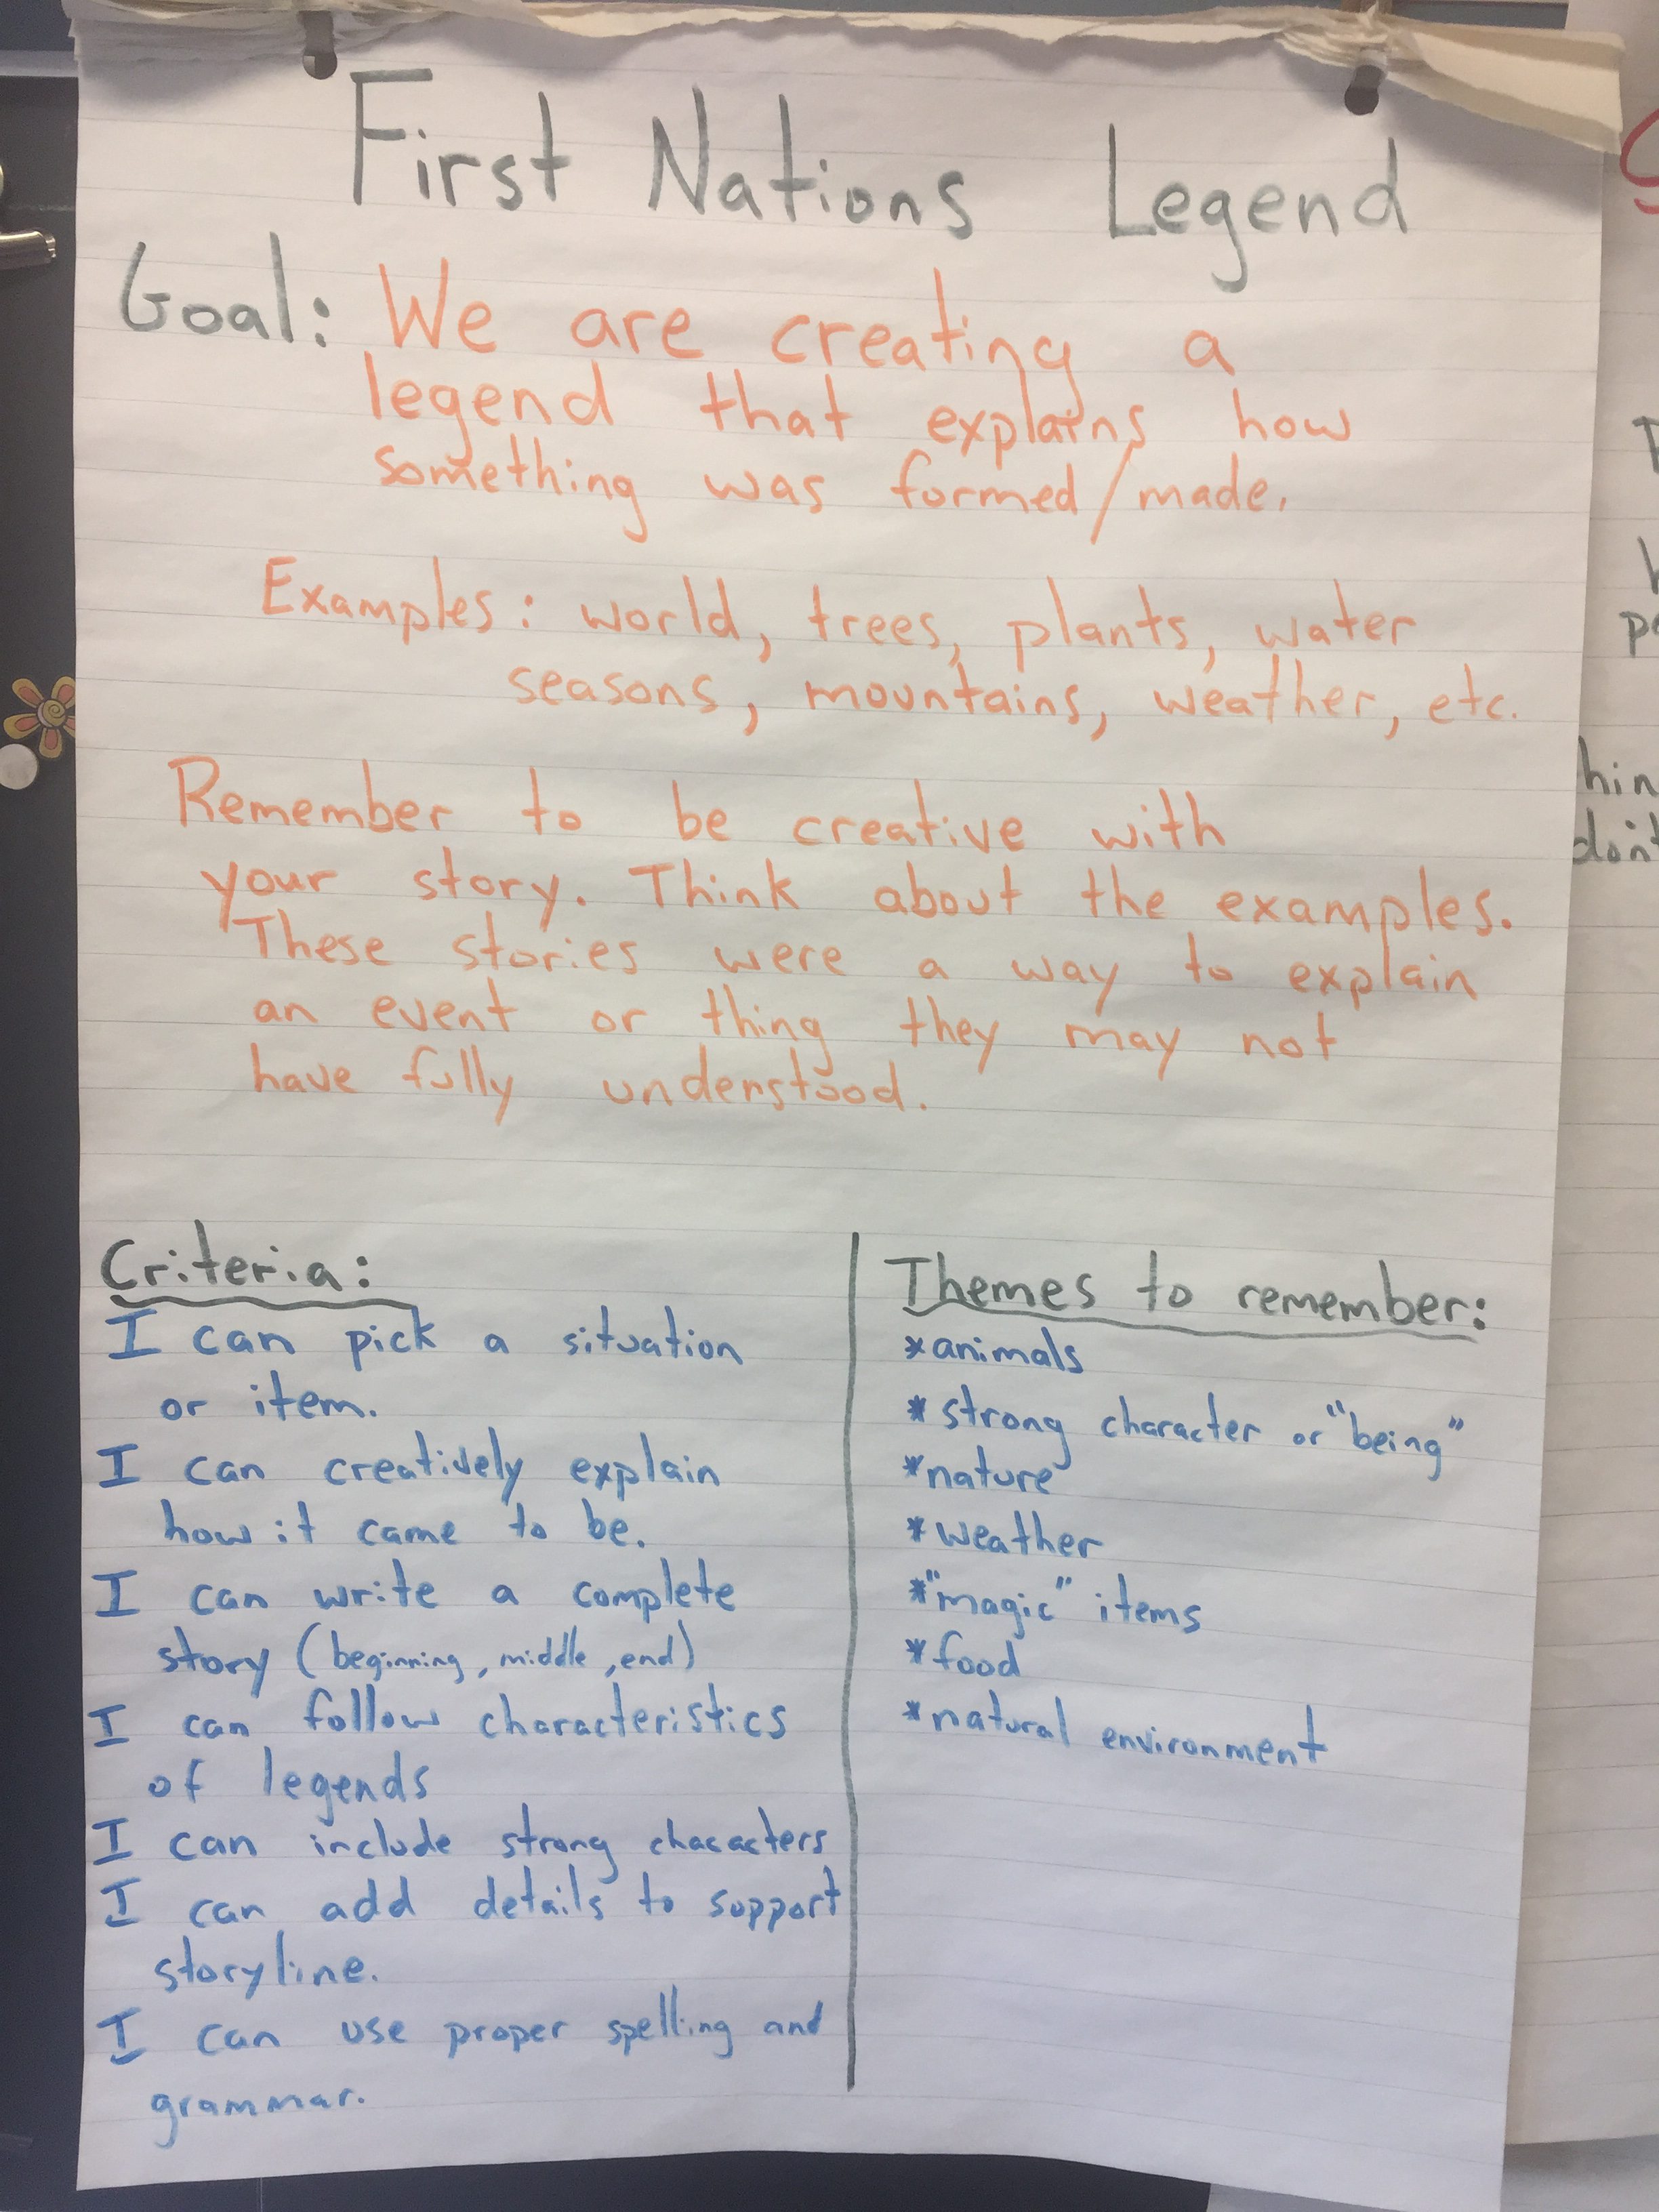 First Nations Legend
Goal: We are creating a
legend that explains how
something was formed/made.
Examples: world, trees, plants, water
seasons, mountains, weather, etc.
Remember to be creative with
your story. Think about the examples.
These stories were a way to explain
an event or thing they may not
have fully understood.
Criteria:
I can pick a situation
or item.
I can creatively explain
how it came to be.
I can write a complete
story (beginning, middle, end)
I can follow characteristics
of legends
I can include strong characters
I can add details to support
storyline.
I can use proper spelling and
grammar.
Themes to remember:
*animals
*strong character or "being"
*nature
*weather
*"magic" items
*food
*natural environment